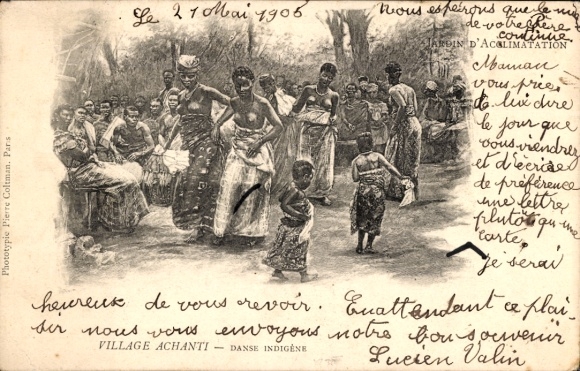 Le 21 Mai 1905
Nous espérons que le mieux
de votre Père
continue
JARDIN D'ACCLIMATATION
Maman
vous prie
de lui dire
le jour que
vous viendrez
et d'écrire
de préférence
une lettre
plutôt qu'une
carte,
je serai
heureux de vous revoir. En attendant ce plai-
sir nous vous envoyons notre bon souvenir
VILLAGE ACHANTI — DANSE INDIGÈNE
Lucien Valin
Phototypie Pierre Coltman, Paris